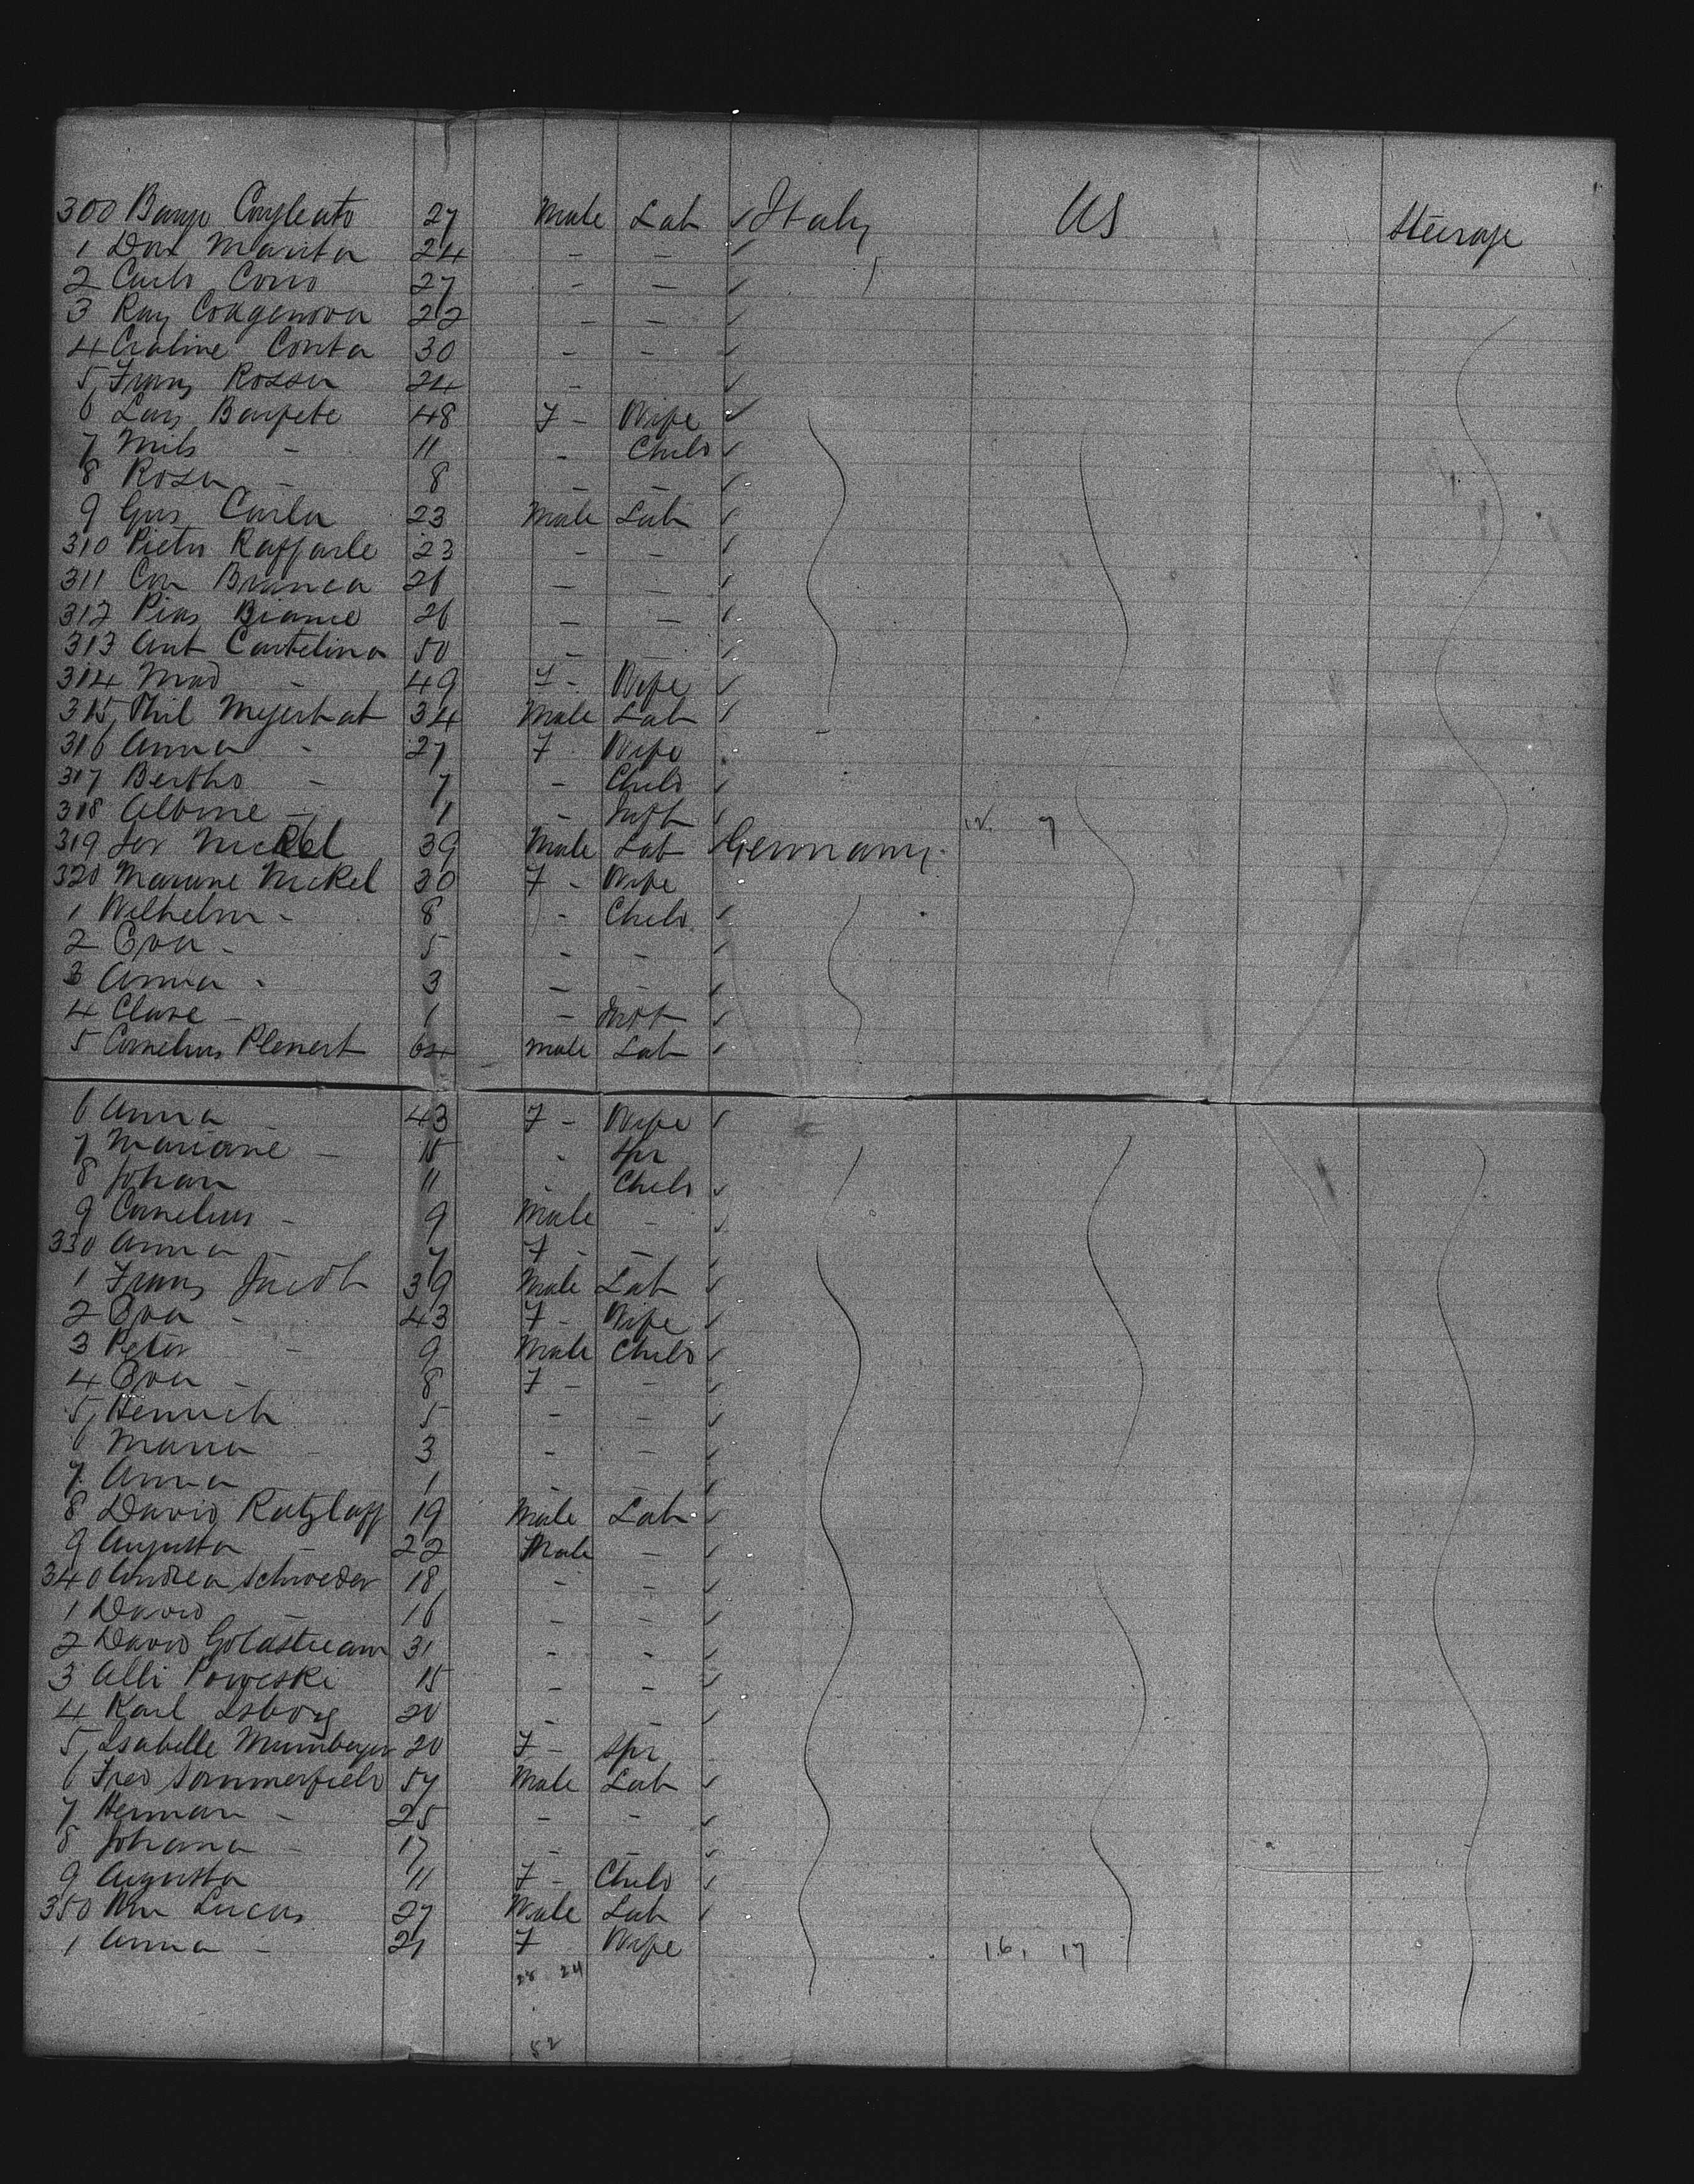 300 Banjo Cogleato 27 Male Lab ✓ Italy US Steerage
1 Dom Manta 24 - - ✓
2 Carlo Corro 27 - - ✓
3 Ray Coagenova 22 - - ✓
4 Conta 30 - - ✓
5 Franz Rossa 24 - ✓
6 Barpete 48 F - Wife ✓
7 Mils - 11 - Child ✓
8 Rosa - 8 - - ✓
9 Gus Carla 23 Male Lab ✓
310 Pietro Raffaele 23 - - ✓
311 Con Branca 26 - - ✓
312 Pias Biance 26 - - ✓
313 Ant Cantelina 50 - ✓
314 Mad - 49 F - Wife ✓
315 Phil Myerhat 34 Male Lab ✓
316 Anna - 27 F Wife
317 Bertho - 7 - Child ✓
318 Albine - 1 - Inft ✓ 12. 7
319 Nickel 39 Male Lab ✓ Germany
320 Mariane Nickel 30 F - Wife
1 Wilhelm - 8 - Child ✓
2 Eva - 5 - - ✓
3 Anna - 3 - - ✓
4 Clare - 1 - Inft ✓
5 Cornelius Plenert 64 Male Lab ✓
6 Anna 43 F - Wife ✓
7 Mariane - 15 - Spr
8 Johan 11 - Child ✓
9 Cornelius - 9 Male - ✓
330 Anna - 7 F - - ✓
1 Franz Jacob 39 Male Lab ✓
2 Eva - 43 F - Wife ✓
3 Peter - 9 Male Child ✓
4 Eva - 8 F - - ✓
5 Heinrich 5 - - ✓
6 Maria - 3 - - ✓
7 Anna 1 - ✓
8 David Ratzlaff 19 Male Lab ✓
9 Augusta - 22 Male - ✓
340 Andrea Schroeder 18 - - ✓
1 David - 16 - - ✓
2 David Goldstream 31 - - ✓
3 Alli Poweski 15 - - ✓
4 Karl Isborg 20 - - ✓
5 Isabelle Mumberger 20 F - Spr
6 Fred Sommerfield 54 Male Lab ✓
7 Herman - 25 - - ✓
8 Johana - 17 - - ✓
9 Augusta 11 F - Child ✓
350 Wm Lucas 27 Male Lab ✓
1 Anna - 21 F Wife 16, 17
28 24
52